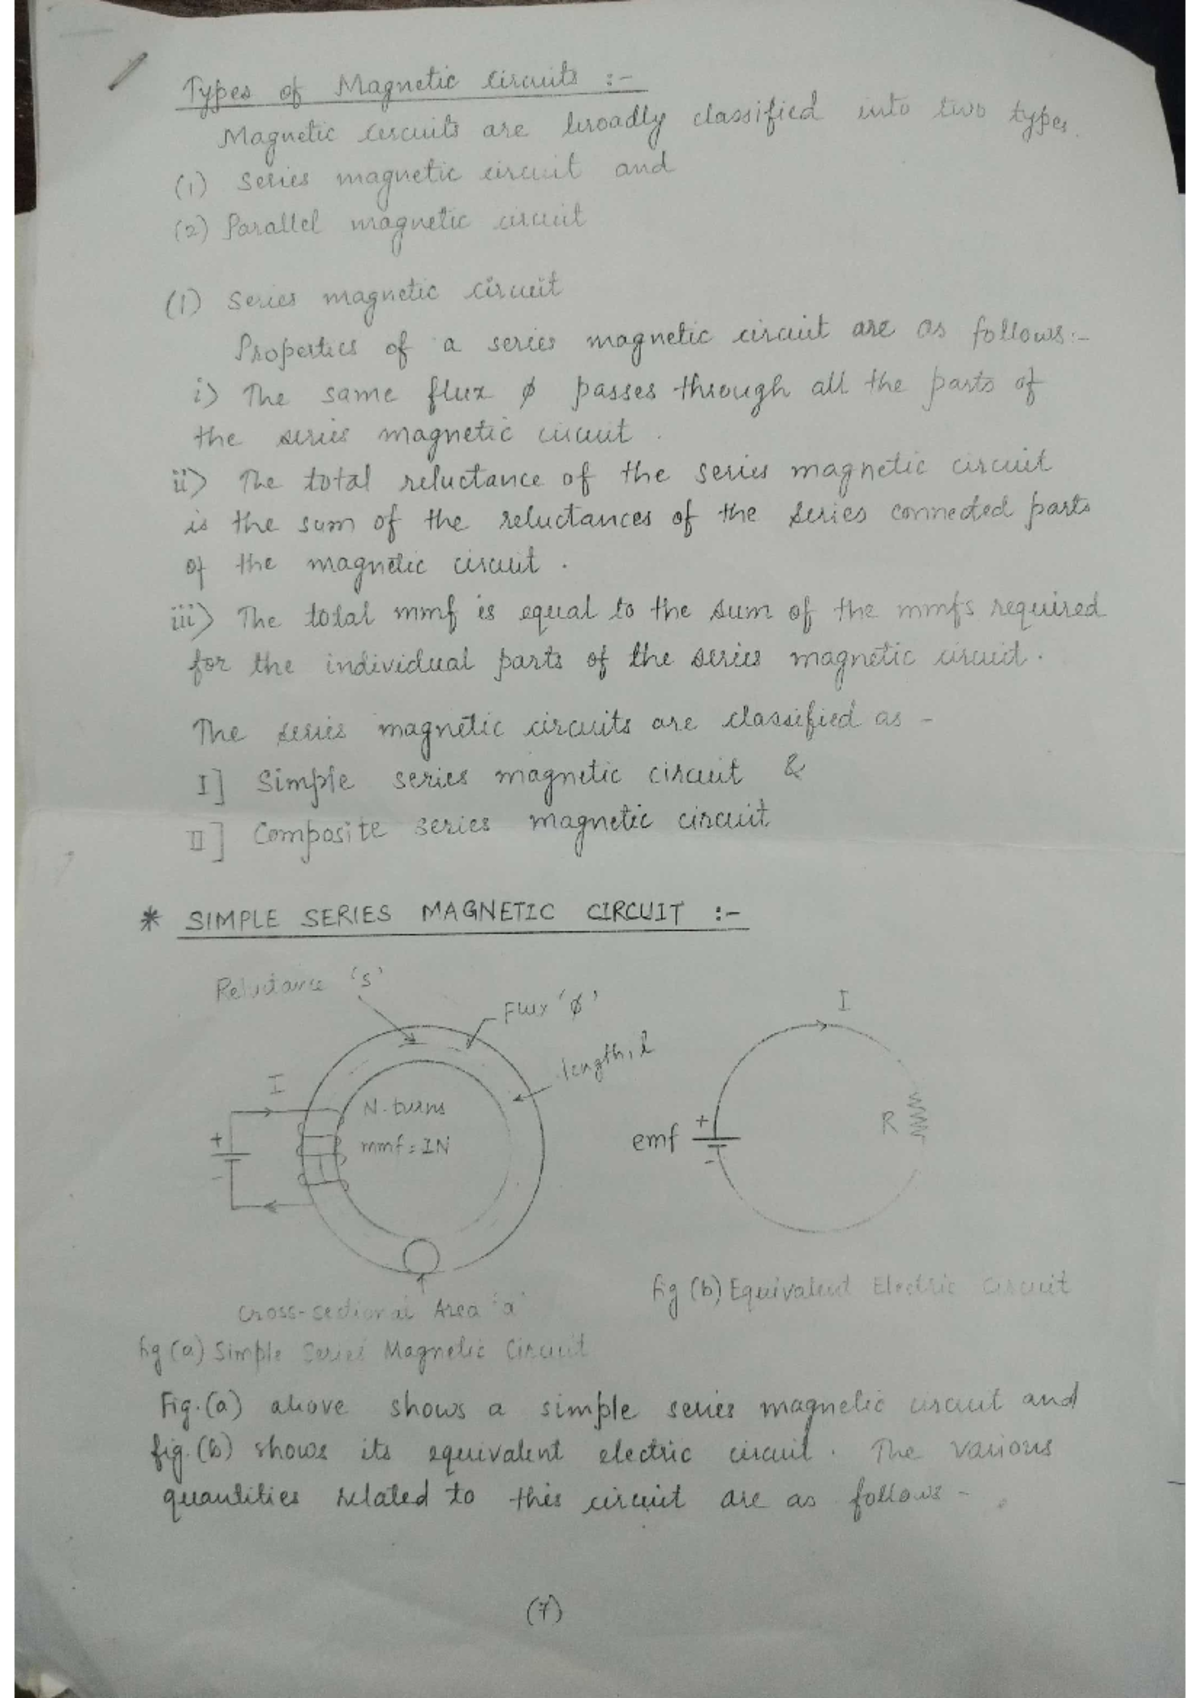 Types of Magnetic Circuits :-
Magnetic circuits are broadly classified into two types.
(1) Series magnetic circuit and
(2) Parallel magnetic circuit
(1) Series magnetic circuit
Properties of a series magnetic circuit are as follows:-
i) The same flux ϕ passes through all the parts of
the series magnetic circuit.
ii) The total reluctance of the series magnetic circuit
is the sum of the reluctances of the series connected parts
of the magnetic circuit.
iii) The total mmf is equal to the sum of the mmfs required
for the individual parts of the series magnetic circuit.
The series magnetic circuits are classified as -
I] Simple series magnetic circuit &
II] Composite series magnetic circuit
* SIMPLE SERIES MAGNETIC CIRCUIT :-
Reluctance 'S'
Flux 'ϕ'
length, l
I
N. turns
mmf = IN
+
-
Cross-sectional Area 'a'
fig (a) Simple Series Magnetic Circuit
I
R
emf
+
-
fig (b) Equivalent Electric Circuit
Fig. (a) above shows a simple series magnetic circuit and
fig. (b) shows its equivalent electric circuit. The various
quantities related to this circuit are as follows -
(7)